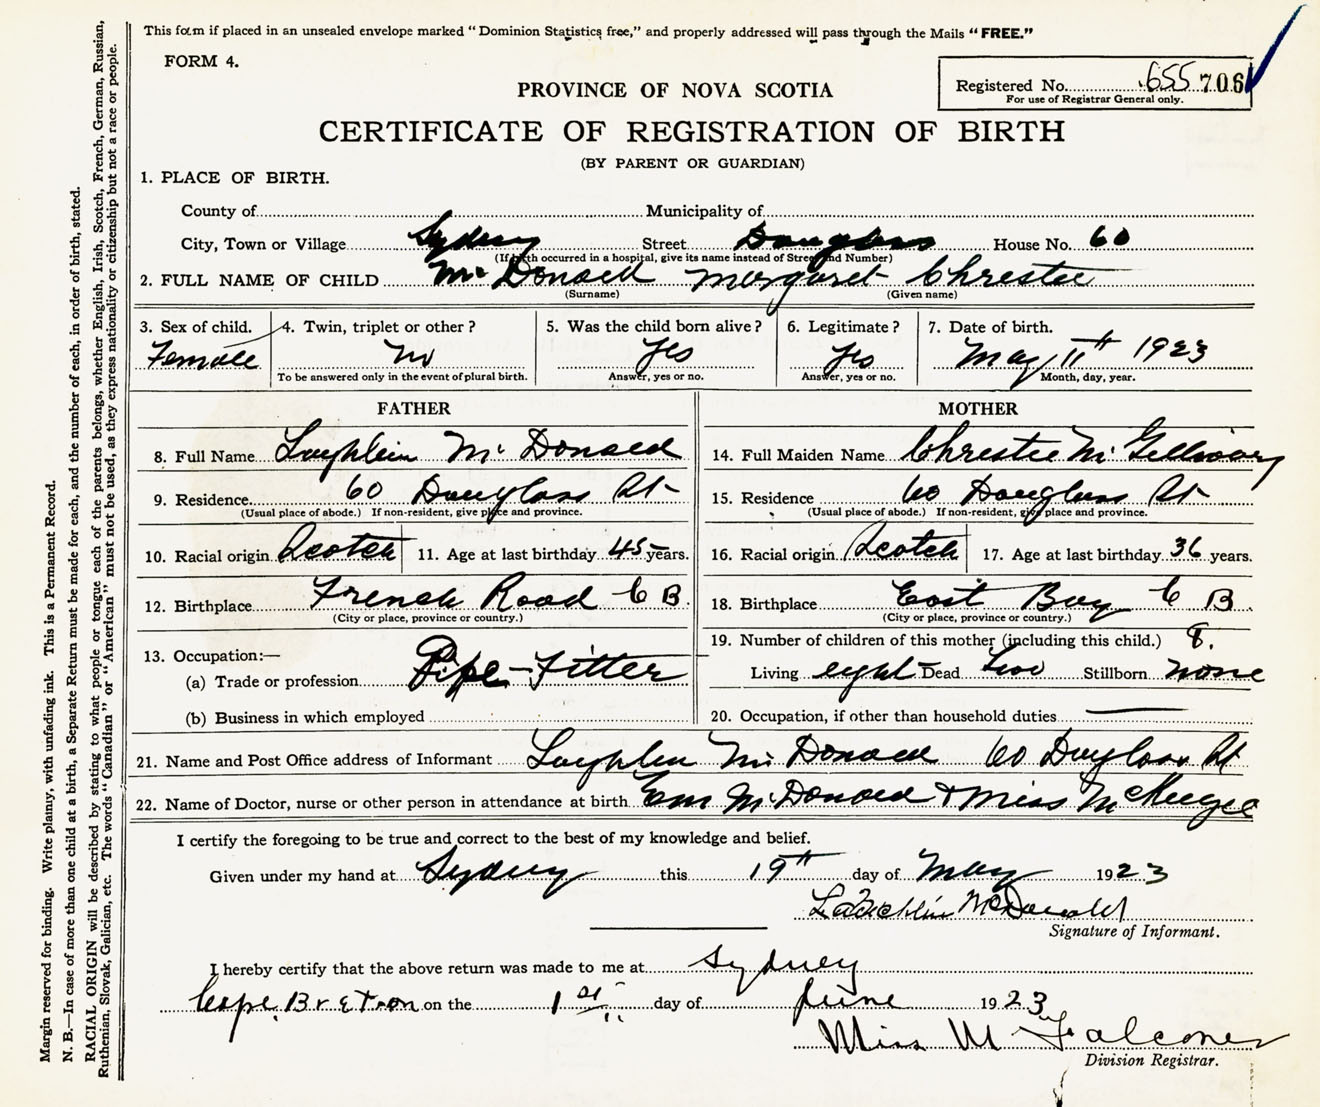 This form if placed in an unsealed envelope marked "Dominion Statistics free," and properly addressed will pass through the Mails "FREE."
FORM 4.
Registered No. 655 706
For use of Registrar General only.
PROVINCE OF NOVA SCOTIA
CERTIFICATE OF REGISTRATION OF BIRTH
(BY PARENT OR GUARDIAN)
1. PLACE OF BIRTH.
County of Municipality of
City, Town or Village Sydney Street Douglass House No. 60
(If birth occurred in a hospital, give its name instead of Street and Number)
2. FULL NAME OF CHILD Mc Donald Margaret Christie
(Surname) (Given name)
3. Sex of child. 4. Twin, triplet or other? 5. Was the child born alive? 6. Legitimate? 7. Date of birth.
Female No Yes Yes May 11th 1923
To be answered only in the event of plural birth. Answer, yes or no. Answer, yes or no. Month, day, year.
FATHER MOTHER
8. Full Name Loughlin Mc Donald 14. Full Maiden Name Christie Mc Gillivary
9. Residence 60 Douglass St 15. Residence 60 Douglass St
(Usual place of abode.) If non-resident, give place and province. (Usual place of abode.) If non-resident, give place and province.
10. Racial origin Scotch 11. Age at last birthday 45 years. 16. Racial origin Scotch 17. Age at last birthday 36 years.
12. Birthplace French Road C B. 18. Birthplace East Bay C B.
(City or place, province or country.) (City or place, province or country.)
13. Occupation:— 19. Number of children of this mother (including this child.) 8.
(a) Trade or profession Pipe-Fitter Living eight Dead two Stillborn none
(b) Business in which employed 20. Occupation, if other than household duties —
21. Name and Post Office address of Informant Loughlin Mc Donald 60 Douglass St
22. Name of Doctor, nurse or other person in attendance at birth Mc Donald & Miss
I certify the foregoing to be true and correct to the best of my knowledge and belief.
Given under my hand at Sydney this 19th day of May 1923
Lauchlin McDonald
Signature of Informant.
I hereby certify that the above return was made to me at Sydney
Cape Breton on the 1st day of June 1923
Miss M Falconer
Division Registrar.
Margin reserved for binding. Write plainly, with unfading ink. This is a Permanent Record.
N. B.—In case of more than one child at a birth, a Separate Return must be made for each, and the number of each, in order of birth, stated.
RACIAL ORIGIN will be described by stating to what people or tongue each of the parents belongs, whether English, Irish, Scotch, French, German, Russian,
Ruthenian, Slovak, Galician, etc. The words "Canadian" or "American" must not be used, as they express nationality or citizenship but not a race or people.